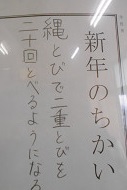 新年のちかい
縄とびで二重とびを
二十回とべるようになる